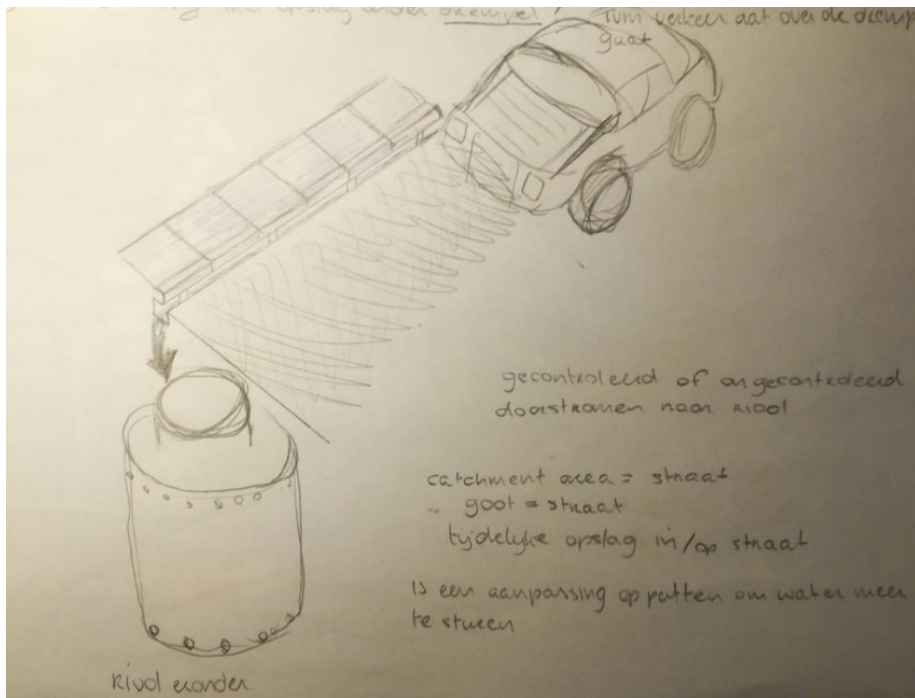 met opslag onder drempel! Tum verkeer dat over de dremp
gaat
gecontroleerd of ongecontroleerd
doorstromen naar riool
catchment area = straat
goot = straat
tijdelijke opslag in/op straat
Is een aanpassing op putten om water mee
te sturen
Riool eronder